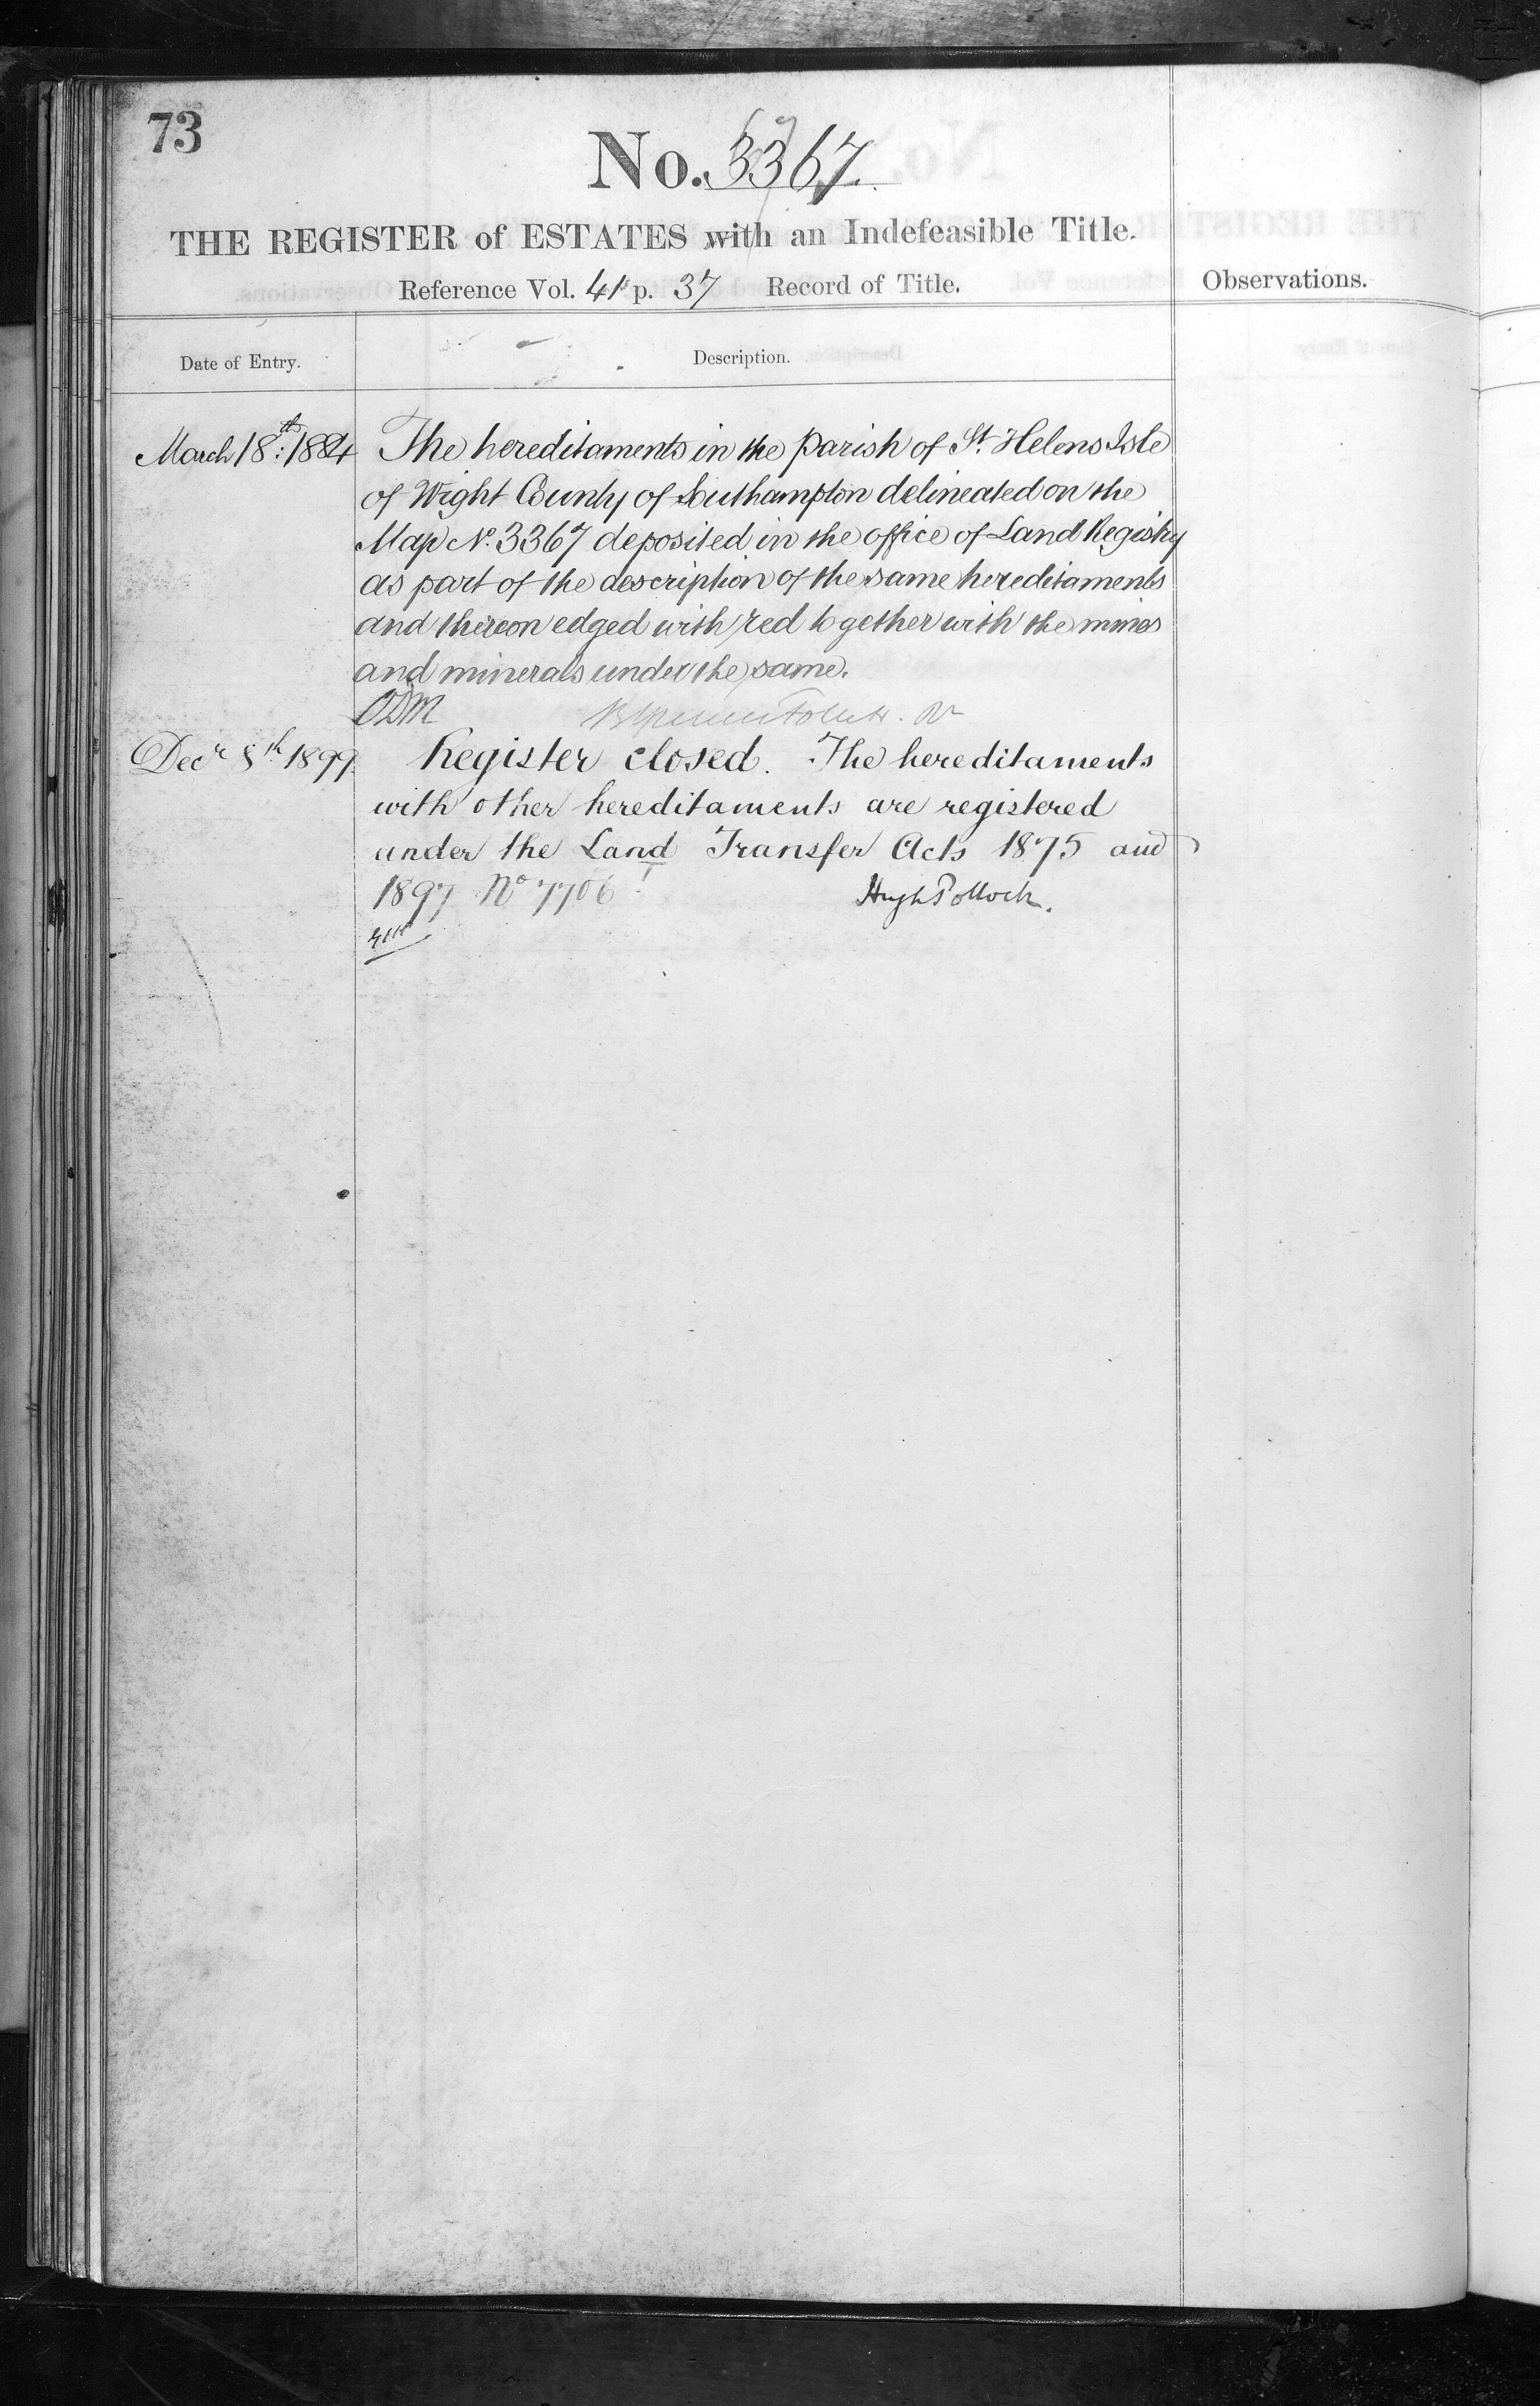 73
No. 3367.
THE REGISTER of ESTATES with an Indefeasible Title.
Reference Vol. 41 p. 37 Record of Title.
Observations.
Date of Entry.
Description.
March 18th: 1884 The hereditaments in the Parish of St. Helens Isle
of Wight County of Southampton delineated on the
Map No. 3367 deposited in the office of Land Registry
as part of the description of the same hereditaments
and thereon edged with red together with the mines
and minerals under the same.
ODM
Decr 8th 1899. Register closed. The hereditaments
with other hereditaments are registered
under the Land Transfer Acts 1875 and
1897 No 7706
Hugh Pollock.